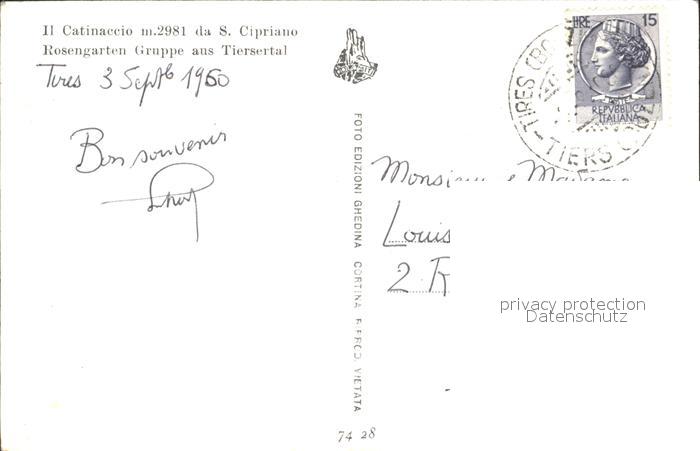 Il Catinaccio m.2981 da S. Cipriano
Rosengarten Gruppe aus Tiersertal
Tires 3 Septb 1960
Bon souvenir
FOTO EDIZIONI GHEDINA CORTINA RIPROD. VIETATA
74 28
LIRE 15
POSTE
REPVBBLICA
ITALIANA
TIRES (BO
TIERS
Monsieur e Madame
Louis
2
privacy protection
Datenschutz